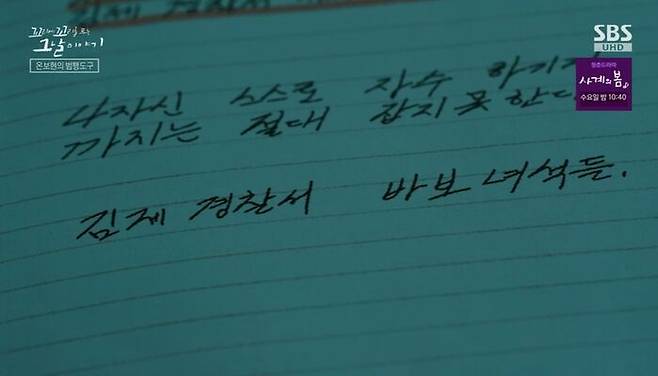 꼬리에꼬리를 무는
그날이야기
온보현의 범행도구
SBS
UHD
청춘드라마
사계의 봄
수요일 밤 10:40
김제 경찰서
나자신 스스로 자수 하기전
까지는 절대 잡지 못 한다
김제 경찰서 바보 녀석들.